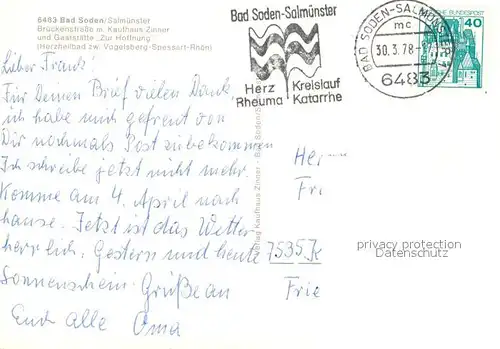 6483 Bad Soden/Salmünster
Brückenstraße m. Kaufhaus Zinner
und Gaststätte „Zur Hoffnung"
(Herzheilbad zw. Vogelsberg-Spessart-Rhön)
Bad Soden-Salmünster
Herz Kreislauf
Rheuma Katarrhe
BAD SODEN-SALMÜNSTER 1
mc
30.3.78
6483
BUNDESPOST
40
Lieber Frank!
Für Deinen Brief vielen Dank
ich habe mich gefreut von
Dir nochmals Post zubekommen
Ich schreibe jetzt nicht mehr.
Komme am 4. April nach
hause. Jetzt ist das Wetter
herrlich. Gestern und heute
Sonnenschein. Grüße an
Euch alle Oma
Verlag Kaufhaus Zinner - Bad Soden/S
Her
Fri
7535 K
Frie
privacy protection
Datenschutz